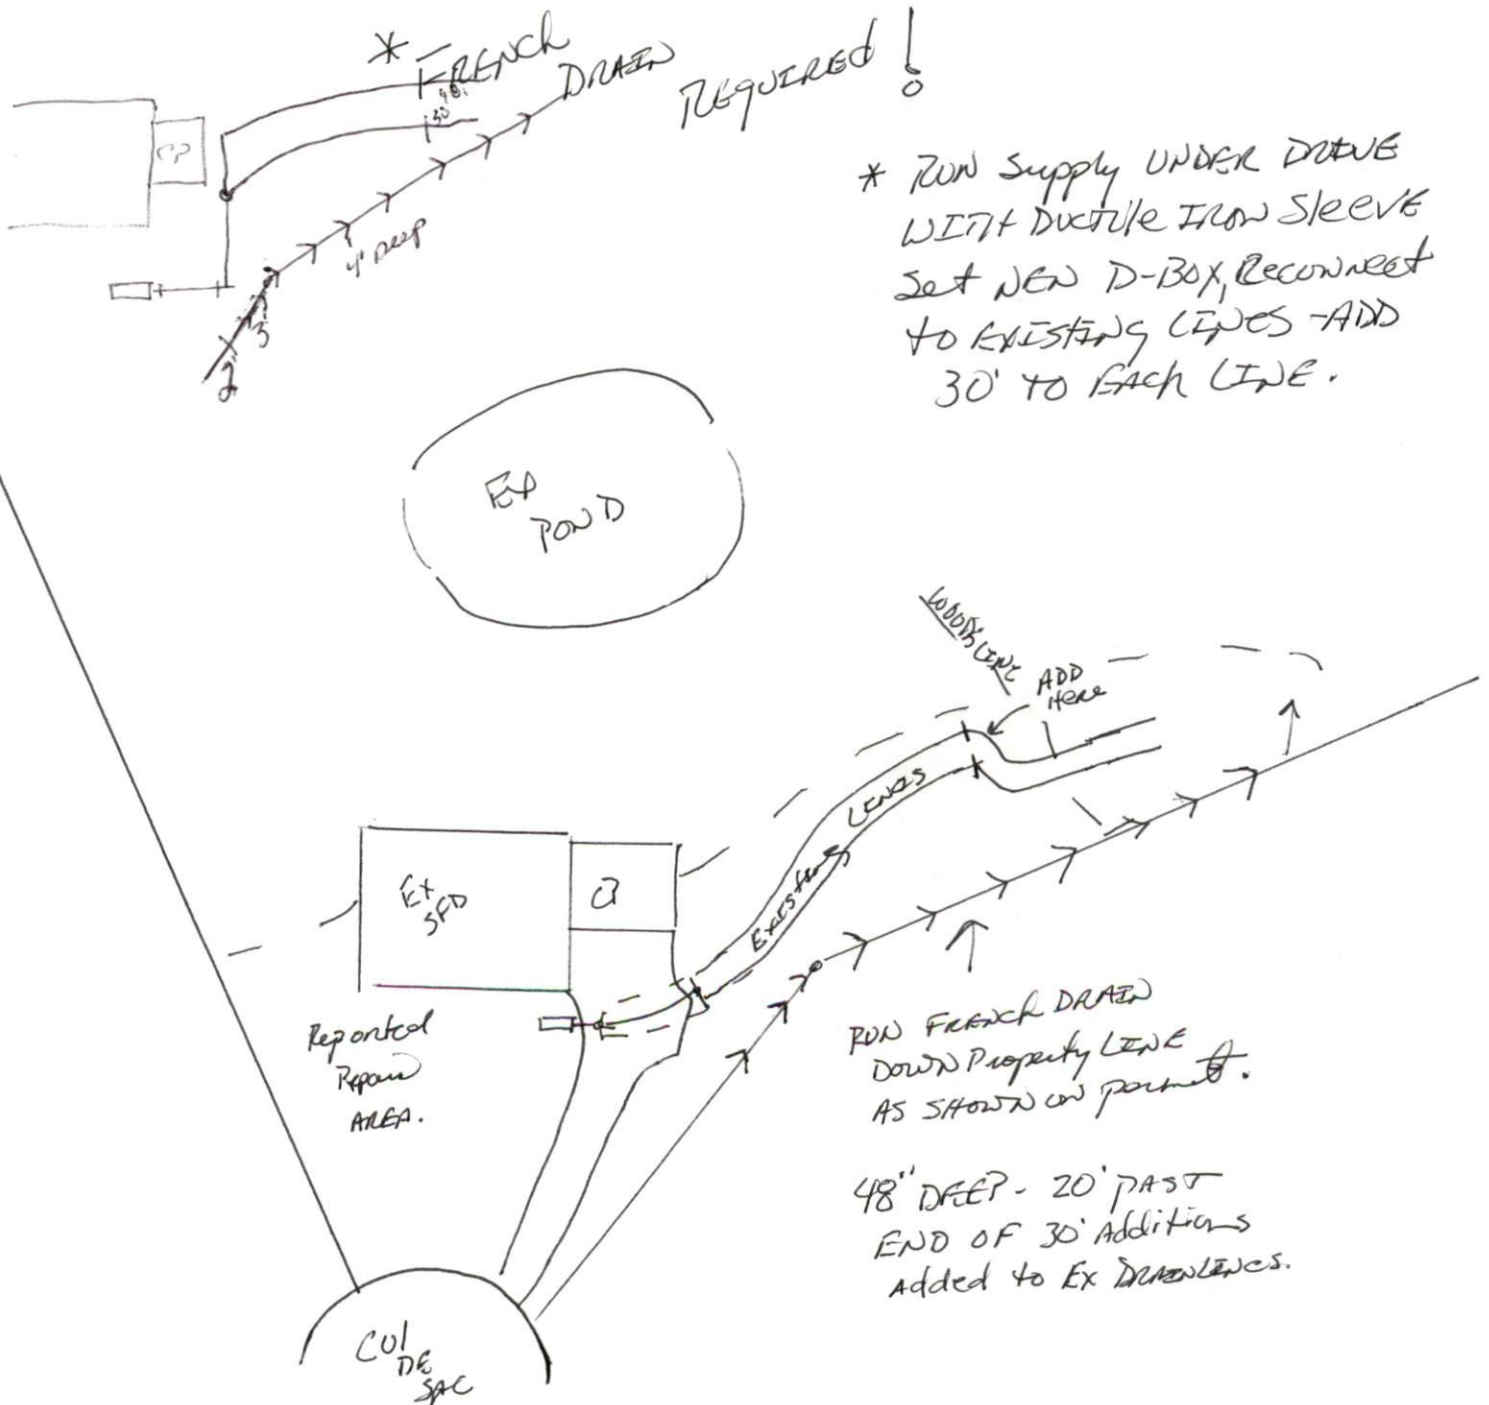 * FRENCH DRAIN REQUIRED!
30'
CP
4' Deep
3
2
* RUN Supply UNDER DRIVE
WITH Ductile IRON Sleeve
Set NEW D-BOX, Reconnect
to EXISTING LINES - ADD
30' TO EACH LINE.
EX
POND
WOODS LINE
ADD
Here
EXISTING LINES
EX
SFD
Reported
Repair
AREA.
RUN FRENCH DRAIN
DOWN Property LINE
AS SHOWN ON permit.
48" DEEP - 20' PAST
END OF 30' Additions
Added to Ex DRAINLINES.
CUL
DE
SAC